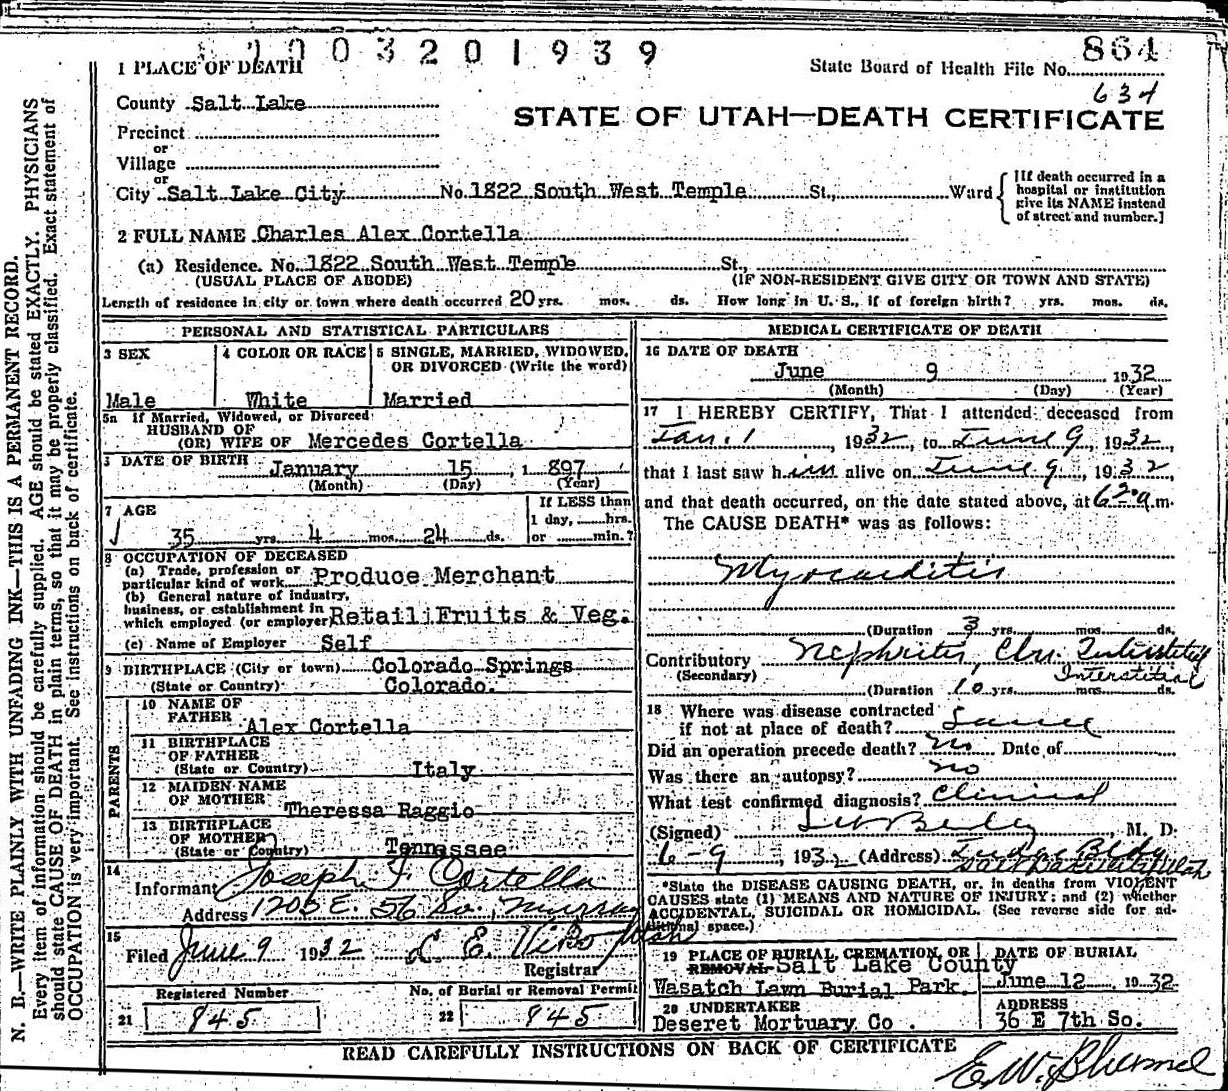 1003201939
864
1 PLACE OF DEATH
State Board of Health File No.
634
County Salt Lake
STATE OF UTAH—DEATH CERTIFICATE
Precinct
or
Village
or
City Salt Lake City No. 1822 South West Temple St., Ward
[If death occurred in a hospital or institution give its NAME instead of street and number.]
2 FULL NAME Charles Alex Cortella
(a) Residence. No. 1822 South West Temple St.
(USUAL PLACE OF ABODE) (IF NON-RESIDENT GIVE CITY OR TOWN AND STATE)
Length of residence in city or town where death occurred 20 yrs. mos. ds. How long in U. S., if of foreign birth? yrs. mos. ds.
PERSONAL AND STATISTICAL PARTICULARS
3 SEX
Male
4 COLOR OR RACE
White
5 SINGLE, MARRIED, WIDOWED, OR DIVORCED (Write the word)
Married
5a If Married, Widowed, or Divorced
HUSBAND OF
(OR) WIFE OF Mercedes Cortella
DATE OF BIRTH January 15, 1897
(Month) (Day) (Year)
7 AGE
35 yrs. 4 mos. 24 ds.
If LESS than
1 day, hrs.
or min.?
8 OCCUPATION OF DECEASED
(a) Trade, profession or
particular kind of work Produce Merchant
(b) General nature of industry,
business, or establishment in
which employed (or employer) Retail Fruits & Veg.
(c) Name of Employer Self
9 BIRTHPLACE (City or town) Colorado Springs
(State or Country) Colorado.
PARENTS
10 NAME OF
FATHER Alex Cortella
11 BIRTHPLACE
OF FATHER
(State or Country) Italy
12 MAIDEN NAME
OF MOTHER Theressa Raggio
13 BIRTHPLACE
OF MOTHER
(State or Country) Tennessee
14
Informant Joseph F Cortella
Address 1205 E. 56 So., Murray Utah
15
Filed June 9 1932 L. E.
Registrar
Registered Number
21 845
No. of Burial or Removal Permit
22 845
MEDICAL CERTIFICATE OF DEATH
16 DATE OF DEATH
June 9 1932
(Month) (Day) (Year)
17 I HEREBY CERTIFY, That I attended deceased from
Jan. 1, 1932, to June 9, 1932,
that I last saw him alive on June 9, 1932,
and that death occurred, on the date stated above, at 6 a.m.
The CAUSE DEATH* was as follows:
Myocarditis
(Duration 3 yrs. mos. ds.
Contributory Nephritis, Chr. Interstitial
(Secondary) Interstitial
(Duration 10 yrs. mos. ds.
18 Where was disease contracted
if not at place of death? Same
Did an operation precede death? No Date of
Was there an autopsy? no
What test confirmed diagnosis? Clinical
(Signed) M. D.
6-9, 1932 (Address) Judge Bldg
Salt Lake City Utah
*State the DISEASE CAUSING DEATH, or, in deaths from VIOLENT
CAUSES state (1) MEANS AND NATURE OF INJURY; and (2) whether
ACCIDENTAL, SUICIDAL OR HOMICIDAL. (See reverse side for ad-
ditional space.)
19 PLACE OF BURIAL, CREMATION, OR
REMOVAL Salt Lake County
Wasatch Lawn Burial Park.
DATE OF BURIAL
June 12, 1932.
20 UNDERTAKER
Deseret Mortuary Co.
ADDRESS
36 E 7th So.
READ CAREFULLY INSTRUCTIONS ON BACK OF CERTIFICATE
E. W.
N. B.—WRITE PLAINLY WITH UNFADING INK—THIS IS A PERMANENT RECORD.
Every item of information should be carefully supplied. AGE should be stated EXACTLY. PHYSICIANS
should state CAUSE OF DEATH in plain terms, so that it may be properly classified. Exact statement of
OCCUPATION is very important. See instructions on back of certificate.